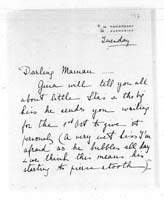 Tuesday
Darling Maman
Gina will tell you all
about little
kiss he sends you waiting
for the 1st Oct to give it
personally (A very wet kiss I'm
afraid as he bubbles all day
& we think this means he's
starting to pierce a tooth)